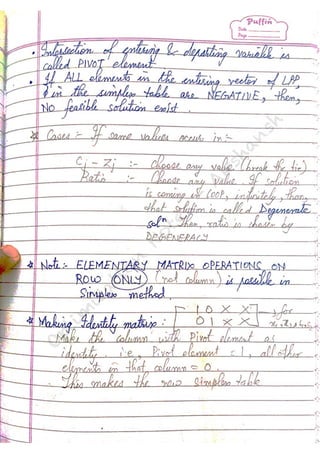 Puffin
Date
Page
• Intersection of entering & departing variable is
called PIVOT element.
• If ALL elements in the entering vector of LPP,
& in the simplex table are NEGATIVE, then,
NO feasible solution exist.
* Cases :- If same values occur in :-
Cj - Zj :- choose any value (break the tie)
Ratio :- Choose any value. If solution
is coming in loop, infinitely, then,
that solution is called Degenerate
solⁿ. Then, ratio is chosen by
DEGENERACY
* Note :- ELEMENTARY MATRIX OPERATIONS ON
ROW ONLY (not column) is possible in
Simplex method.
* Making Identity matrix :- 1 0 X X for
0 1 X X
Make the column with Pivot element as
identity. i.e., Pivot element = 1, all other
elements in that column = 0.
. This makes the new simplex table